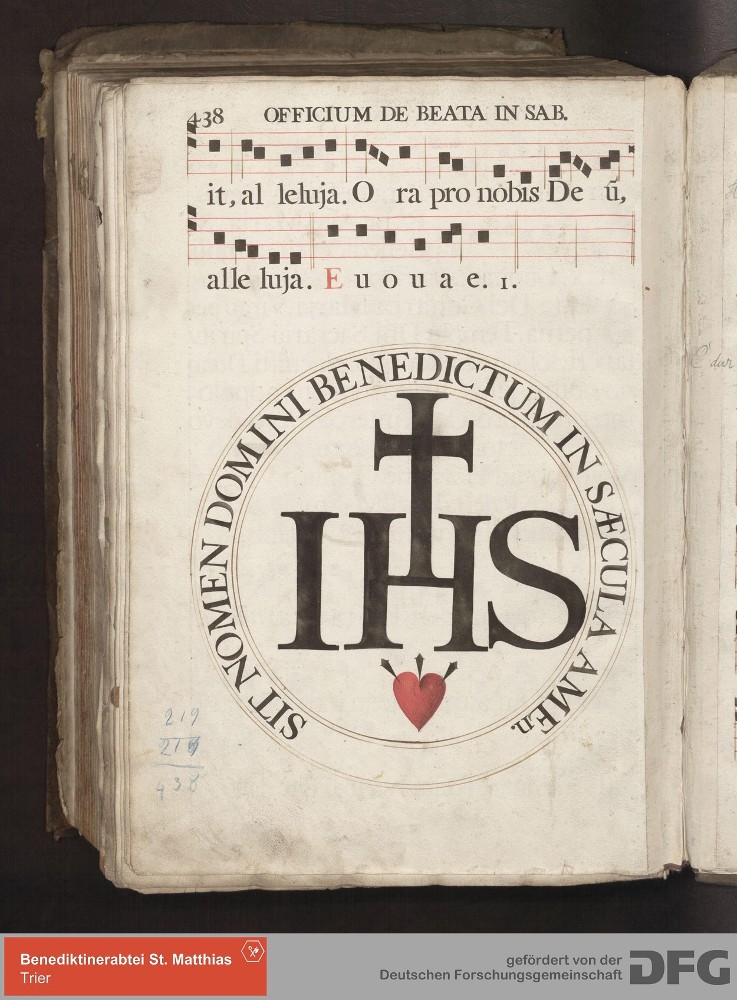 438 OFFICIUM DE BEATA IN SAB.
it, al leluja. O ra pro nobis De ũ,
alle luja. E u o u a e. 1.
SIT NOMEN DOMINI BENEDICTUM IN SÆCULA AMEn.
IHS
219
219
438
Benediktinerabtei St. Matthias
Trier
gefördert von der
Deutschen Forschungsgemeinschaft
DFG